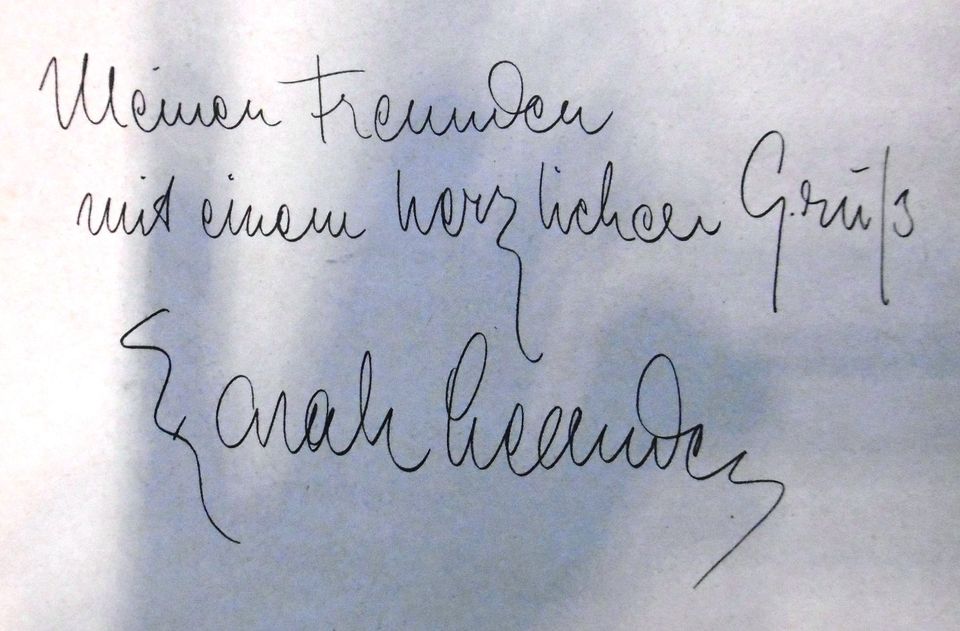 Meinen Freunden
mit einem herzlichen Gruß
Zarah Leander